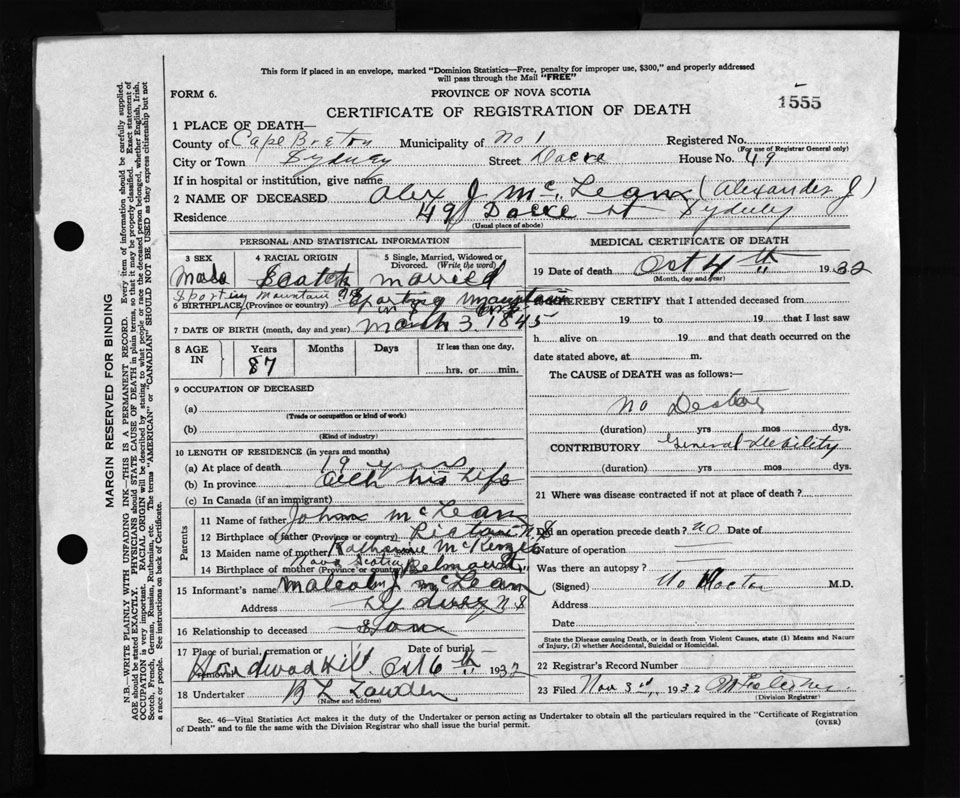 This form if placed in an envelope, marked "Dominion Statistics—Free, penalty for improper use, $300," and properly addressed
will pass through the Mail "FREE"
FORM 6.
PROVINCE OF NOVA SCOTIA
1555
CERTIFICATE OF REGISTRATION OF DEATH
1 PLACE OF DEATH—
County of Cape Breton Municipality of No 1 Registered No.
(For use of Registrar General only)
City or Town Sydney Street House No. 49
If in hospital or institution, give name
2 NAME OF DECEASED Alex J McLean (Alexander J)
Residence 49 St Sydney
(Usual place of abode)
PERSONAL AND STATISTICAL INFORMATION
3 SEX Male
4 RACIAL ORIGIN Scotch
5 Single, Married, Widowed or Divorced. (Write the word) married
Sporting Mountain
6 BIRTHPLACE (Province or country) Sporting Mountain
7 DATE OF BIRTH (month, day and year) March 3 1845
8 AGE IN Years Months Days If less than one day,
87 hrs. or min.
9 OCCUPATION OF DECEASED
(a)
(Trade or occupation or kind of work)
(b)
(Kind of industry)
10 LENGTH OF RESIDENCE (in years and months)
(a) At place of death 19 years
(b) In province All his life
(c) In Canada (if an immigrant)
Parents
11 Name of father John McLean
12 Birthplace of father (Province or country) N S
13 Maiden name of mother Katharine McKenzie
Nova Scotia
14 Birthplace of mother (Province or country)
15 Informant's name Malcolm J McLean
Address Sydney, N S
16 Relationship to deceased Son
17 Place of burial, cremation or removal Date of burial
Hardwood Hill Oct 6th 1932
18 Undertaker
(Name and address)
MEDICAL CERTIFICATE OF DEATH
19 Date of death Oct 4th 1932
(Month, day and year)
I HEREBY CERTIFY that I attended deceased from
19 to 19 that I last saw
h alive on 19 and that death occurred on the
date stated above, at m.
The CAUSE of DEATH was as follows:—
No Doctor
(duration) yrs mos dys.
CONTRIBUTORY General Debility
(duration) yrs mos dys.
21 Where was disease contracted if not at place of death?
Did an operation precede death? no Date of
Nature of operation
Was there an autopsy?
(Signed) No Doctor M.D.
Address
Date
State the Disease causing Death, or in death from Violent Causes, state (1) Means and Nature
of Injury, (2) whether Accidental, Suicidal or Homicidal.
22 Registrar's Record Number
23 Filed Nov 3rd, 1932
(Division Registrar)
Sec. 46—Vital Statistics Act makes it the duty of the Undertaker or person acting as Undertaker to obtain all the particulars required in the "Certificate of Registration
of Death" and to file the same with the Division Registrar who shall issue the burial permit.
(OVER)
MARGIN RESERVED FOR BINDING
N.B.—WRITE PLAINLY WITH UNFADING INK—THIS IS A PERMANENT RECORD. Every item of information should be carefully supplied.
AGE should be stated EXACTLY. PHYSICIANS should STATE CAUSE OF DEATH in plain terms, so that it may be properly classified. Exact statement of
OCCUPATION is very important. RACIAL ORIGIN will be described by stating to what people or race the deceased person belonged, whether English, Irish,
Scotch, French, German, Russian, Ruthenian, etc. The terms "AMERICAN" or "CANADIAN" SHOULD NOT BE USED as they express citizenship but not
a race or people. See instructions on back of Certificate.